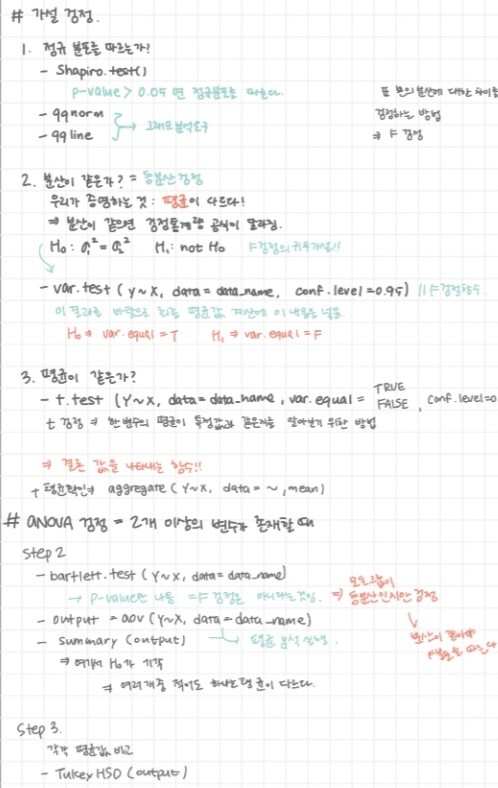 # 가설 검정.
1. 정규 분포를 따르는가?
- Shapiro.test()
p-value > 0.05 면 정규분포를 따른다.
- qqnorm
- qqline
→ 그래프 분석도구
두 분의 분산에 대한 차이를
검정하는 방법
⇒ F 검정
2. 분산이 같은가? = 등분산검정
우리가 증명하는 것: 평균이 다르다!
⇒ 분산이 같으면 검정통계량 공식이 달라짐.
H₀: σ₁² = σ₂² H₁: not H₀ F검정의 귀무가설!!
- var.test (Y~X, data = data_name, conf.level=0.95) // F검정함수.
이 결과를 바탕으로 최종 평균값 계산에 이 내용을 넣음
H₀ ⇒ var.equal = T H₁ ⇒ var.equal = F
3. 평균이 같은가?
- t.test (Y~X, data= data_name, var.equal = TRUE FALSE, conf.level=0
t 검정 ⇒ 한 변수의 평균이 특정값과 같은지를 알아보기 위한 방법
⇒ 결론 값을 나타내는 함수!!
+ 평균확인⇒ aggregate (Y~X, data = ~, mean)
# ANOVA 검정 = 2개 이상의 변수가 존재할 때
Step 2
- bartlett.test (Y~X, data= data_name)
→ p-value만 나옴 = F 검정은 아니라는것임. ⇒ 모든 그룹이 등분산인지만 검정
- output = aov (Y~X, data = data_name)
→ 평균 분석 실행.
- summary (output)
⇒ 여기서 H₀가 기각
⇒ 여러개중 적어도 하나는 평균이 다르다.
분산이 같아야
F분포를 따른다
Step 3.
각각 평균값 비교
- Tukey HSD (output)